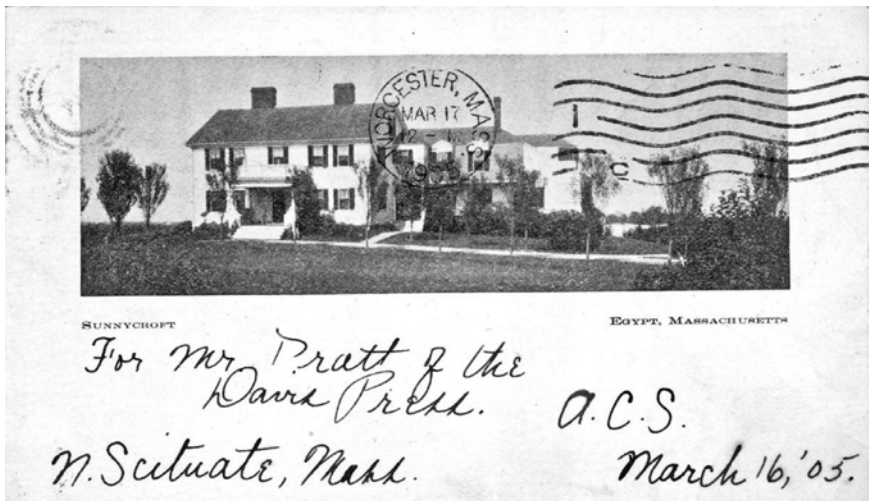 WORCESTER, MASS.
MAR 17
1905
I
C
SUNNYCROFT
EGYPT, MASSACHUSETTS
For Mr Pratt of the
Davis Press.
A.C.S.
N. Scituate, Mass.
March 16, '05.